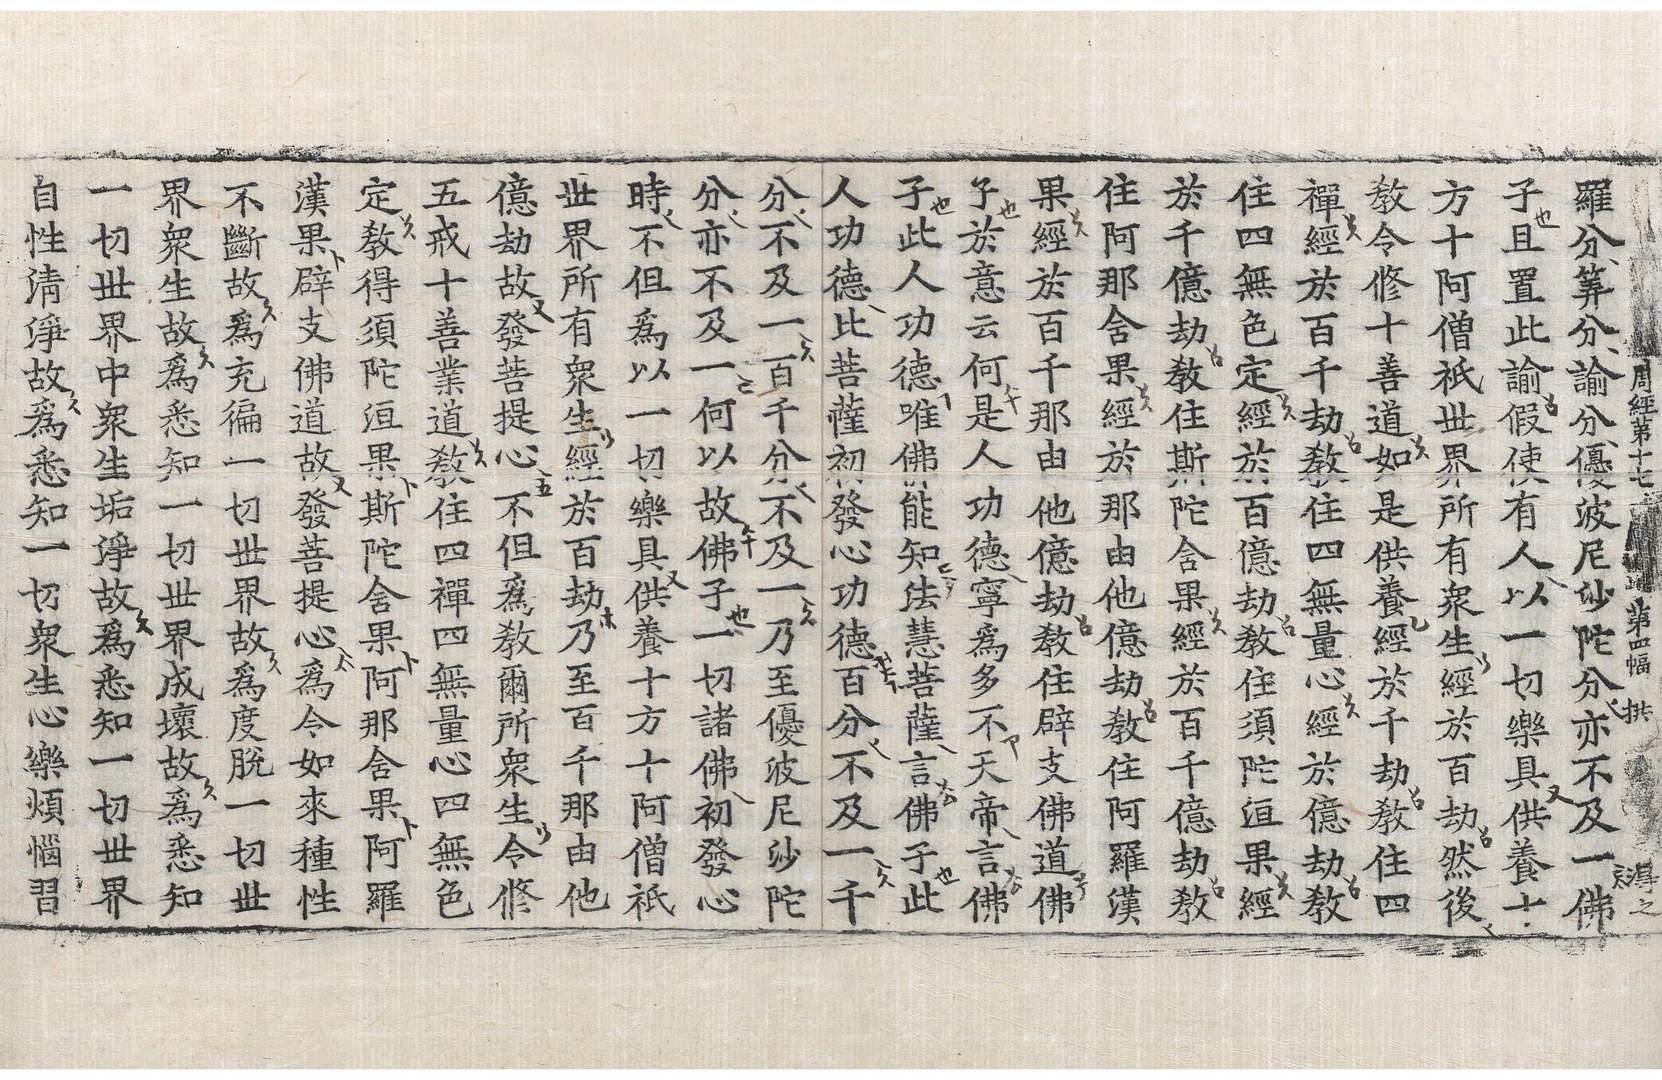 周經第十七 第四幅 拱 得之
羅分筭分諭分優波尼沙陀分亦不及一佛
子且置此諭假使有人以一切樂具供養十
方十阿僧祇世界所有衆生經於百劫然後
教令修十善道如是供養經於千劫教住四
禪經於百千劫教住四無量心經於億劫教
住四無色定經於百億劫教住須陀洹果經
於千億劫教住斯陀含果經於百千億劫教
住阿那舍果經於那由他億劫教住阿羅漢
果經於百千那由他億劫教住辟支佛道佛
子於意云何是人功德寧爲多不天帝言佛
子此人功德唯佛能知法慧菩薩言佛子此
人功德比菩薩初發心功德百分不及一千
分不及一百千分不及一乃至優波尼沙陀
分亦不及一何以故佛子一切諸佛初發心
時不但爲以一切樂具供養十方十阿僧祇
世界所有衆生經於百劫乃至百千那由他
億劫故發菩提心不但爲教爾所衆生令修
五戒十善業道教住四禪四無量心四無色
定教得須陀洹果斯陀舍果阿那舍果阿羅
漢果辟支佛道故發菩提心爲令如來種性
不斷故爲充徧一切世界故爲度脫一切世
界衆生故爲悉知一切世界成壞故爲悉知
一切世界中衆生垢淨故爲悉知一切世界
自性清淨故爲悉知一切衆生心樂煩惱習